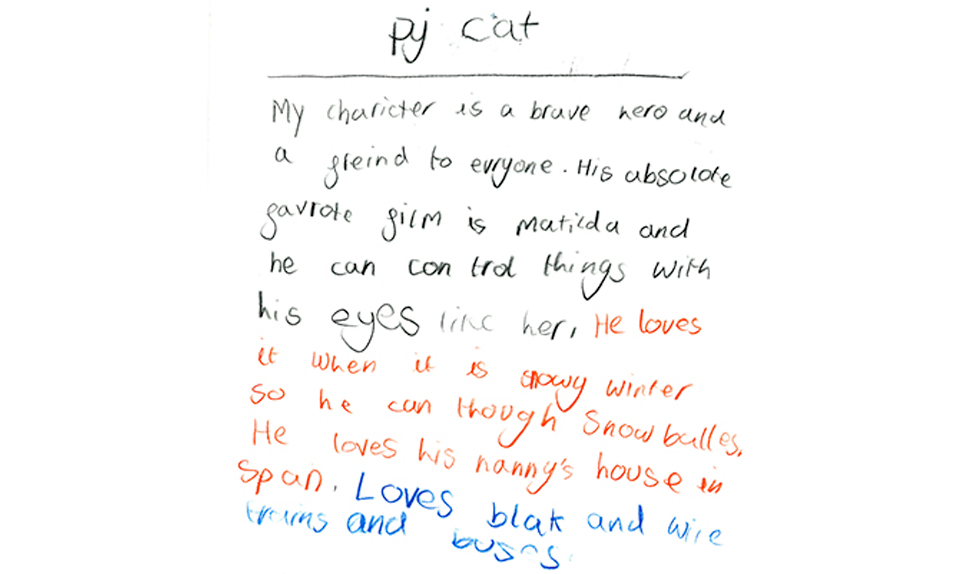 pj cat
My charicter is a brave hero and
a freind to evryone. His absolote
favrote film is Matilda and
he can control things with
his eyes like her, He loves
it when it is snowy winter
so he can though Snowballes.
He loves his nanny's house in
Span. Loves blak and wite
trains and buses.